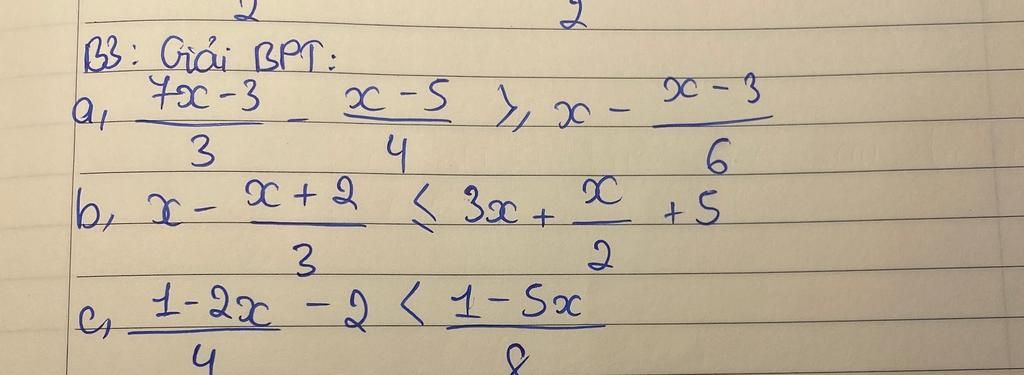 2 2
B3: Giải BPT:
a, (7x - 3)/3 - (x - 5)/4 ≥ x - (x - 3)/6
b, x - (x + 2)/3 ≤ 3x + x/2 + 5
c, (1 - 2x)/4 - 2 < (1 - 5x)/8